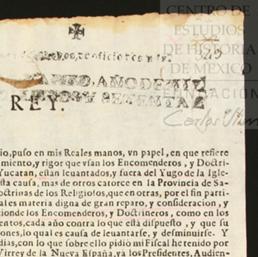 CENTRO DE
ESTUDIOS
DE HISTORIA
DE MEXICO
AÑO DE MIL
Y SETENTA
REY.
io, puso en mis Reales manos, vn papel, en que refiere
miento, y rigor que vsan los Encomenderos, y Doctri-
Yucatan, estan leuantados, y fuera del Yugo de la Igle-
sta causa, mas de otros catorce en la Prouincia de Sa-
octrinas de los Religiosos, que en otras, por el fin parti-
ales materia digna de gran reparo, y consideracion, y
iendo los Encomenderos, y Doctrineros, como en los
entos, cada año contra lo que está dispuesto, y que su
iones, lo qual es causa de leuantarse, y desminuirse. Y
dias, con lo que sobre ello pidió mi Fiscal he tenido por
Virrey de la Nueua España, ya los Presidentes, Audien-